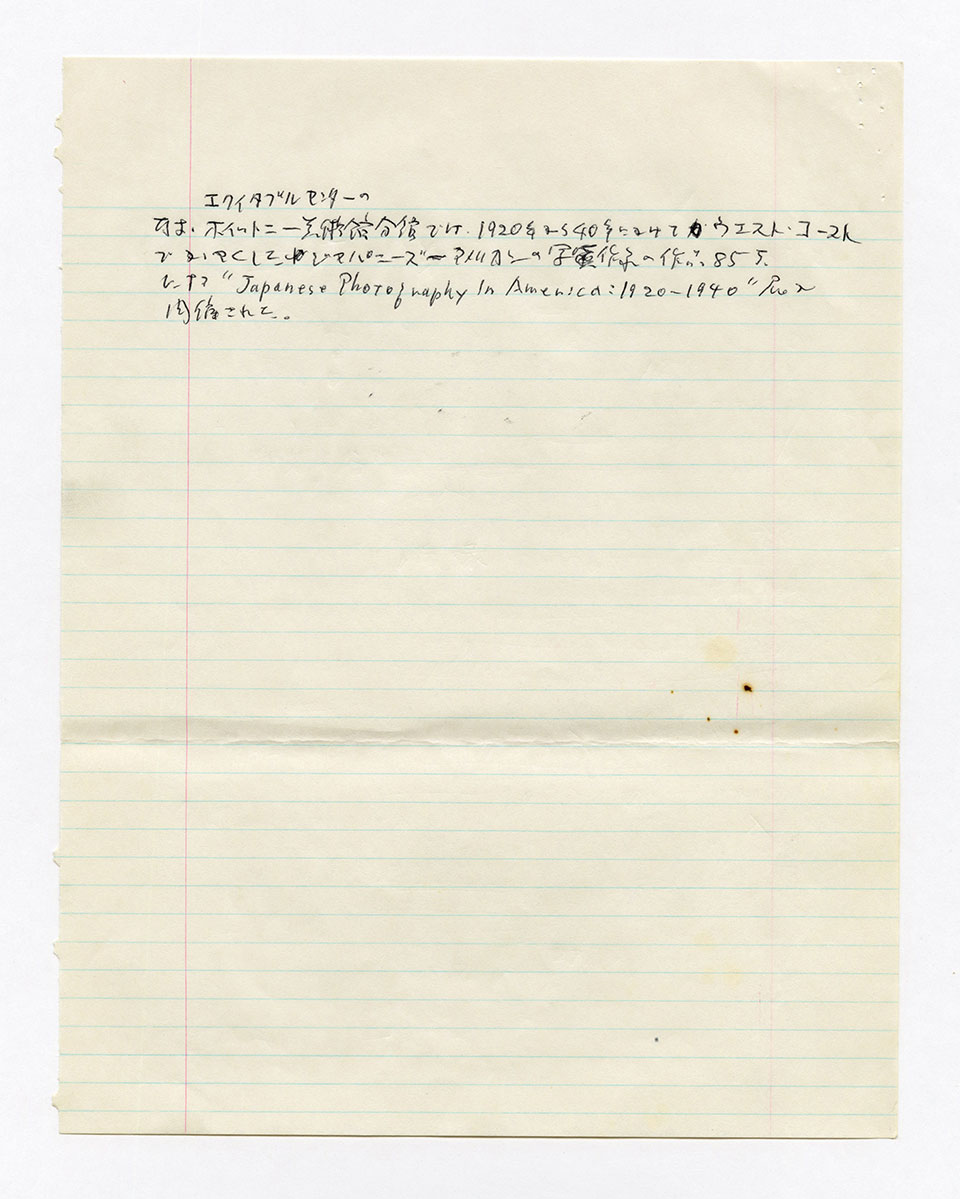 エクイタブルセンターの
ホイットニー美術館分館では、1920年から40年にかけて ウエスト・コースト
でかつやくした ジャパニーズ アメリカンの写真作家の作品85点
"Japanese Photography In America: 1920-1940"
開催された。